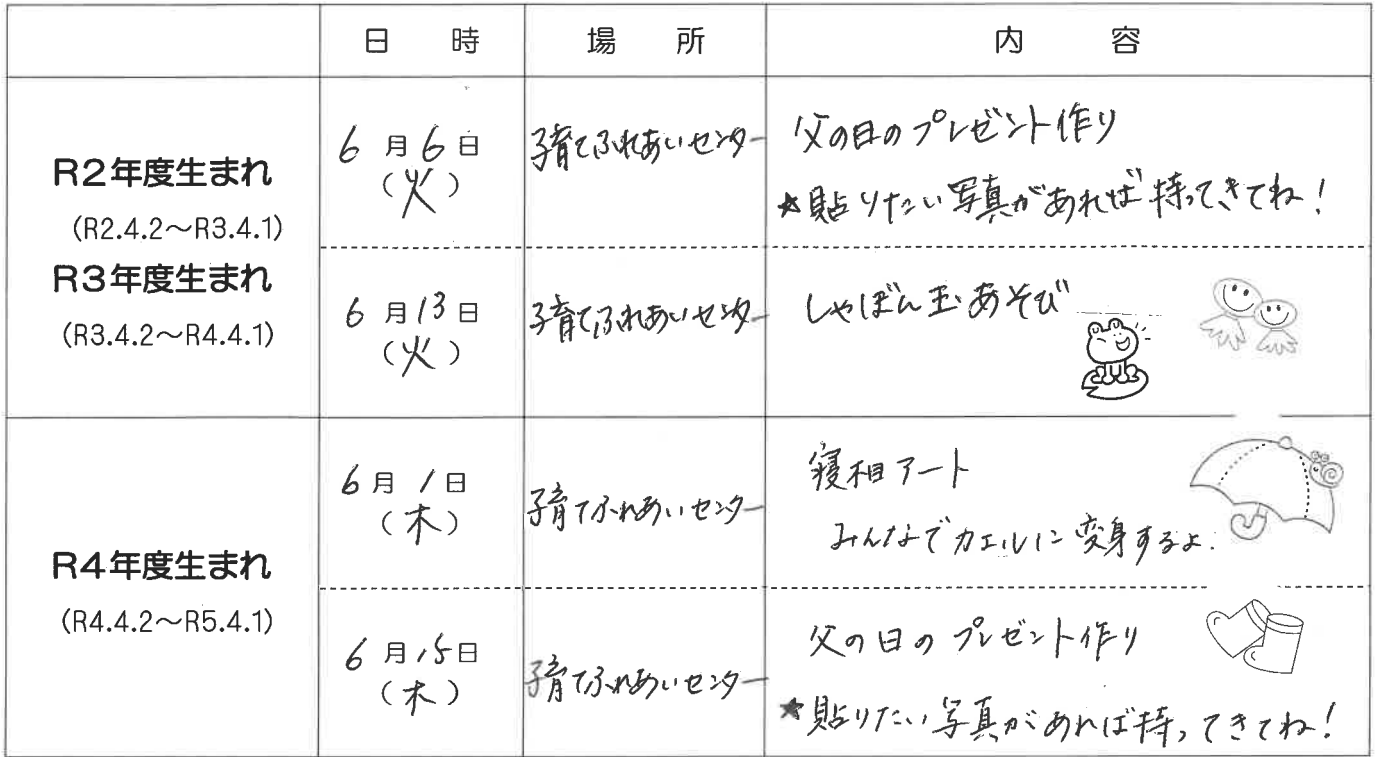 日時 場所 内容
R2年度生まれ
(R2.4.2～R3.4.1)
R3年度生まれ
(R3.4.2～R4.4.1)
6月6日
(火)
子育てふれあいセンター
父の日のプレゼント作り
★貼りたい写真があれば持ってきてね!
6月13日
(火)
子育てふれあいセンター
しゃぼん玉あそび
R4年度生まれ
(R4.4.2～R5.4.1)
6月1日
(木)
子育てふれあいセンター
寝相アート
みんなでカエルに変身するよ.
6月15日
(木)
子育てふれあいセンター
父の日のプレゼント作り
★貼りたい写真があれば持ってきてね!